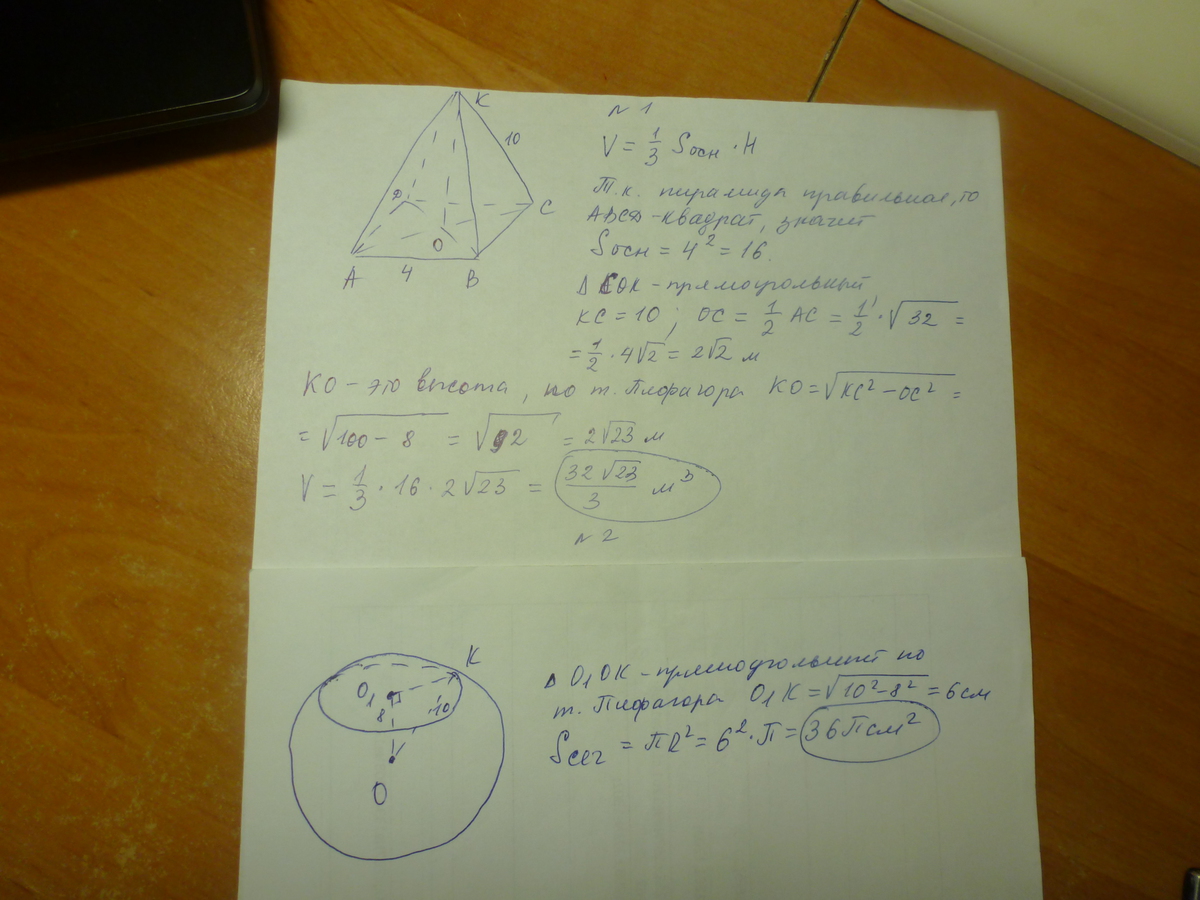 K
10
D
C
O
A
4
B
N 1
V = 1/3 Sосн · H
Т.к. пирамида правильная, то
ABCD - квадрат, значит
Sосн = 4² = 16.
Δ COK - прямоугольный
KC = 10; OC = 1/2 AC = 1/2 · √32 =
= 1/2 · 4√2 = 2√2 м
KO - это высота, по т. Пифагора KO = √KC² - OC² =
= √100 - 8 = √92 = 2√23 м
V = 1/3 · 16 · 2√23 = 32√23/3 м³
N 2
K
O₁
8
10
O
Δ O₁OK - прямоугольный по
т. Пифагора O₁K = √10² - 8² = 6 см
Sсеч = ПR² = 6² · П = 36П см²